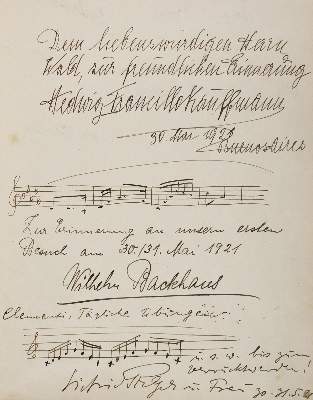 Dem liebenswürdigen Herrn
Wald, zur freundlichen Erinnerung
Hedwig Francillo Kauffmann
30. Mai 1921
Buenos Aires
Zur Erinnerung an unsern ersten
Besuch am 30./31. Mai 1921
Wilhelm Backhaus
Clementi, Tägliche Übungen:
u. s. w. bis zum
verrückt werden!
u. Frau 30-31.5.21